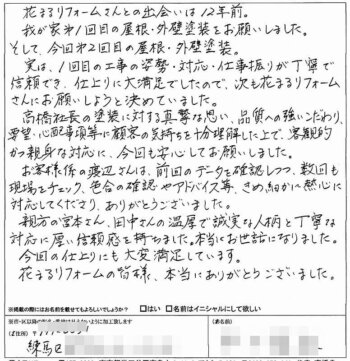 花まるリフォームさんとの出会いは12年前。
我が家第1回目の屋根・外壁塗装をお願いしました。
そして、今回第2回目の屋根・外壁塗装。
実は、1回目の工事の姿勢・対応・仕事振りが丁寧で
信頼でき、仕上りに大満足でしたので、次も花まるリフォーム
さんにお願いしようと決めていました。
高橋社長の塗装に対する真摯な思い、品質への強いこだわり、
要望・心配事項等に顧客の気持ちを十分理解した上で、客観的
かつ親身な対応に、今回も安心してお願いしました。
お客様係の渡辺さんは、前回のデータを確認しつつ、数回も
現場をチェック、色合の確認やアドバイス等、きめ細かに熱心に
対応してくださり、ありがとうございました。
親方の宮本さん、田中さんの温厚で誠実な人柄と丁寧な
対応に厚い信頼感を持ちました。本当にお世話になりました。
今回の仕上りにも大変満足しています。
花まるリフォームの皆様、本当にありがとうございました。
※掲載の際にはお名前を載せてもよろしいでしょうか？ □はい □名前はイニシャルにして欲しい
※市・区以降のお名前は見えないように加工致します
(ご住所)
(お名前)
練馬区